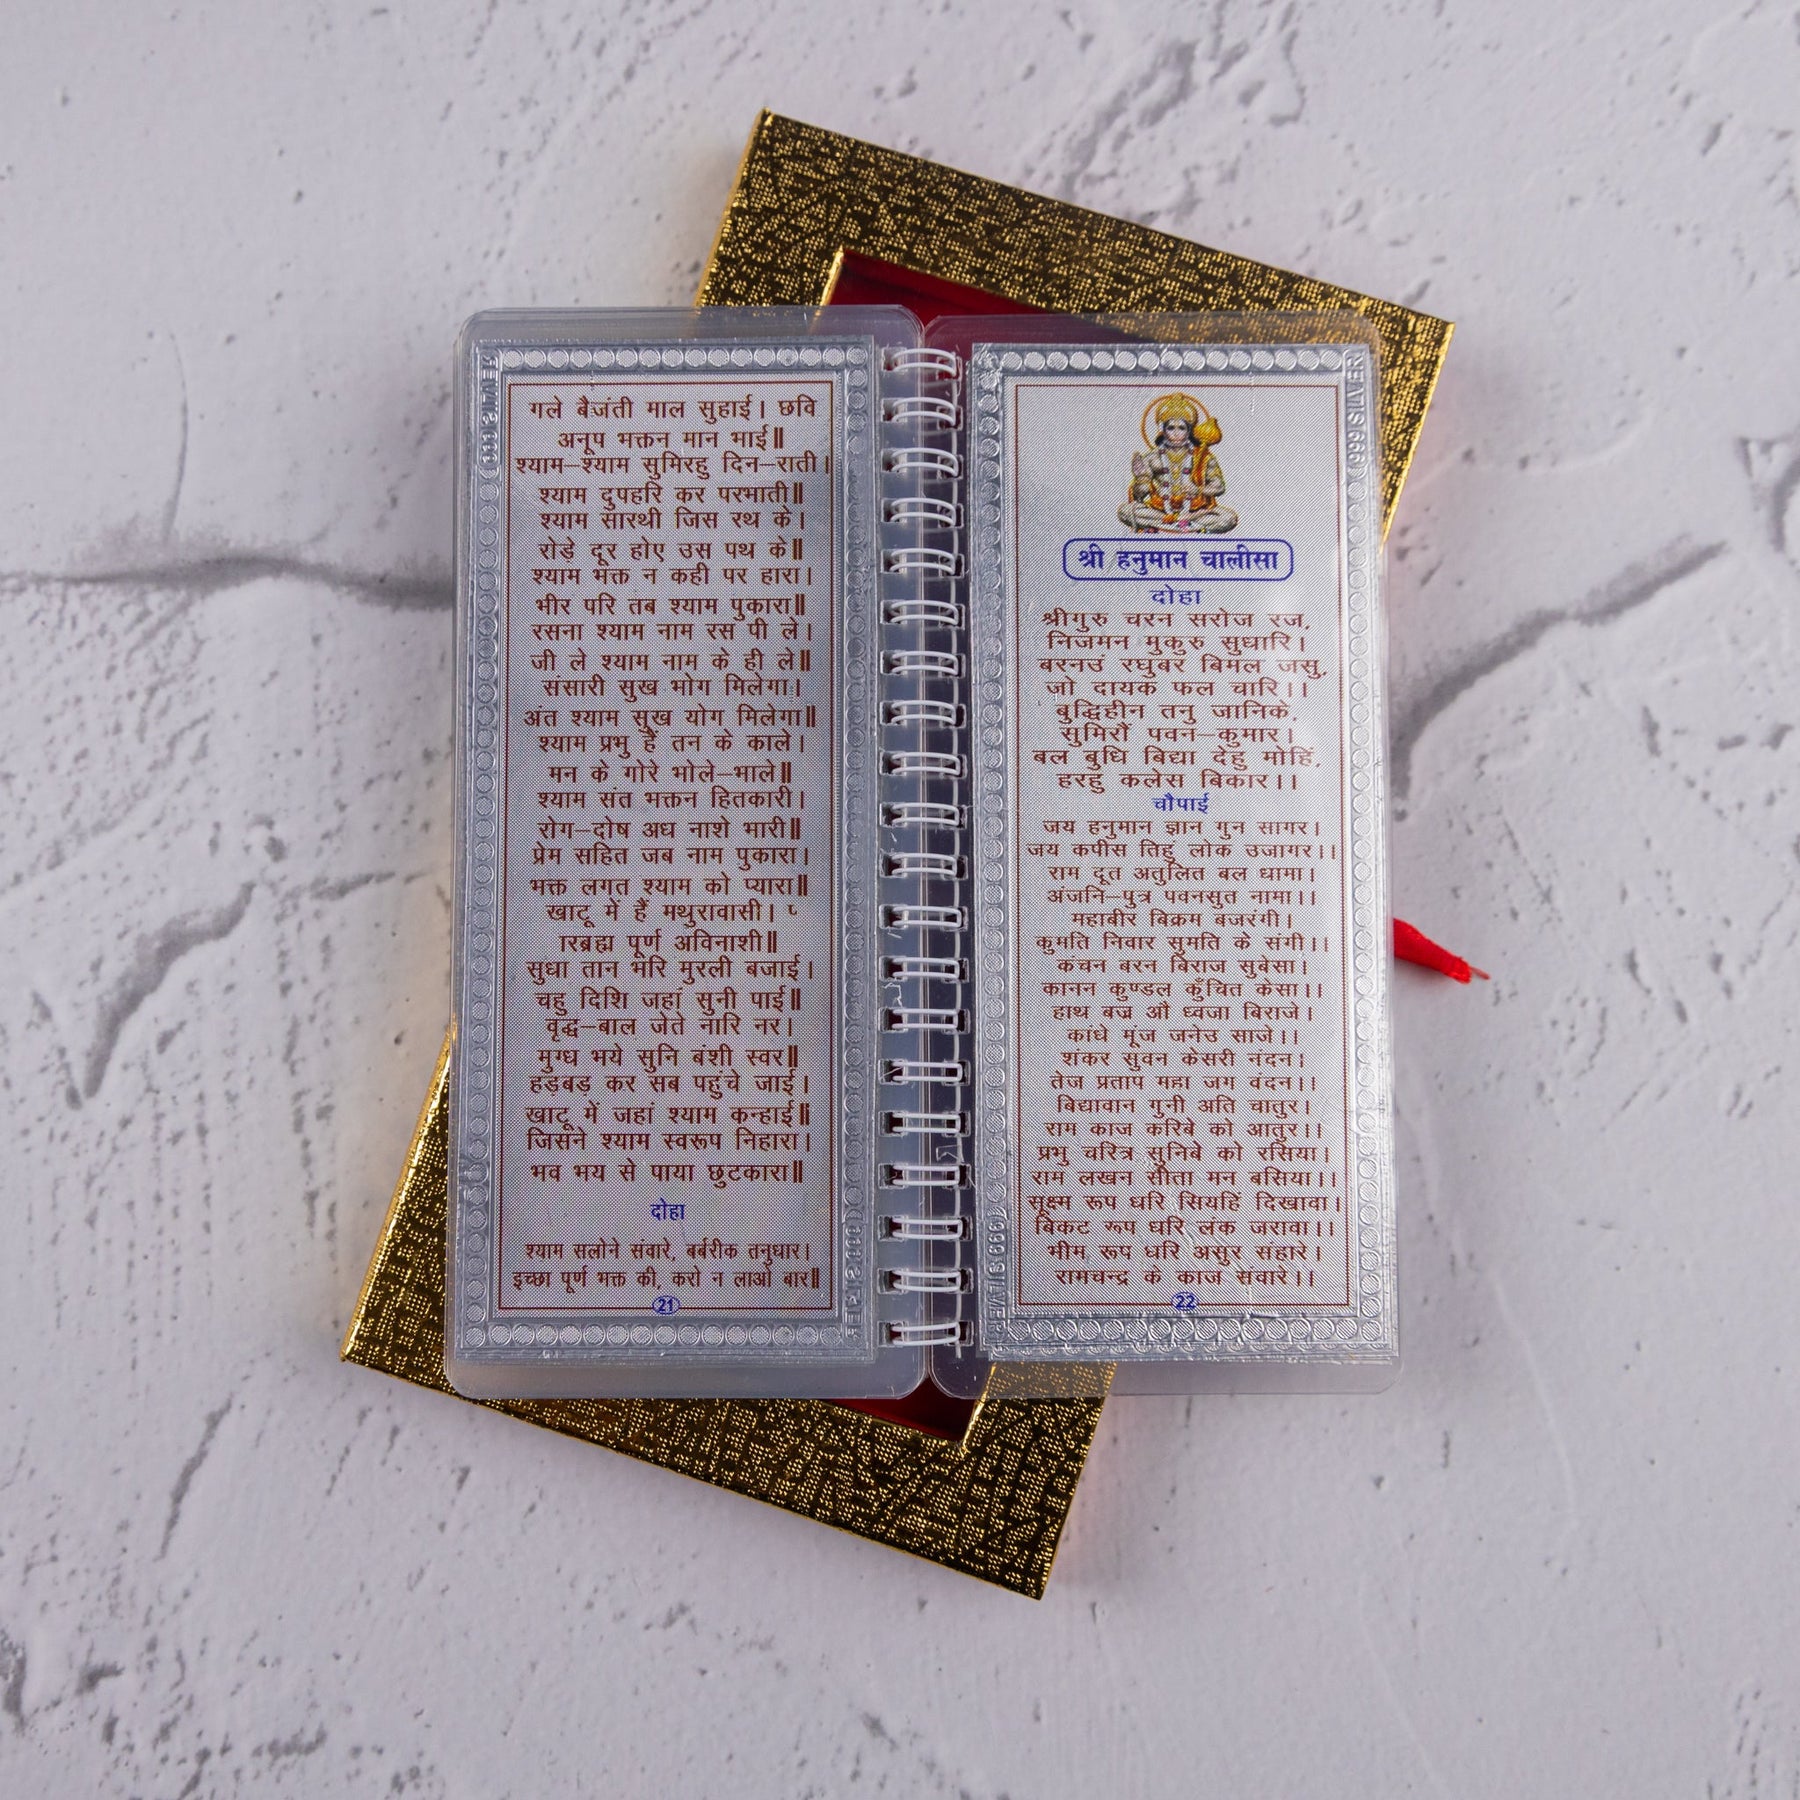 गले बैजंती माल सुहाई। छवि
अनूप भक्तन मान भाई॥
श्याम–श्याम सुमिरहु दिन–राती।
श्याम दुपहरि कर परभाती॥
श्याम सारथी जिस रथ के।
रोड़े दूर होए उस पथ के॥
श्याम भक्त न कही पर हारा।
भीर परि तब श्याम पुकारा॥
रसना श्याम नाम रस पी ले।
जी ले श्याम नाम के ही ले॥
संसारी सुख भोग मिलेगा।
अंत श्याम सुख योग मिलेगा॥
श्याम प्रभु हैं तन के काले।
मन के गोरे भोले–भाले॥
श्याम संत भक्तन हितकारी।
रोग–दोष अध नाशे भारी॥
प्रेम सहित जब नाम पुकारा।
भक्त लगत श्याम को प्यारा॥
खाटू में हैं मथुरावासी।
ारब्रह्म पूर्ण अविनाशी॥
सुधा तान भरि मुरली बजाई।
चहु दिशि जहां सुनी पाई॥
वृद्ध–बाल जेते नारि नर।
मुग्ध भये सुनि बंशी स्वर॥
हड़बड़ कर सब पहुंचे जाई।
खाटू में जहां श्याम कन्हाई॥
जिसने श्याम स्वरूप निहारा।
भव भय से पाया छुटकारा॥
दोहा
श्याम सलोने संवारे, बर्बरीक तनुधार।
इच्छा पूर्ण भक्त की, करो न लाओ बार॥
21
श्री हनुमान चालीसा
दोहा
श्रीगुरु चरन सरोज रज,
निजमन मुकुरु सुधारि।
बरनउं रघुबर बिमल जसु,
जो दायक फल चारि।।
बुद्धिहीन तनु जानिके,
सुमिरौं पवन–कुमार।
बल बुधि बिद्या देहु मोहिं,
हरहु कलेस बिकार।।
चौपाई
जय हनुमान ज्ञान गुन सागर।
जय कपीस तिहु लोक उजागर।।
राम दूत अतुलित बल धामा।
अंजनि–पुत्र पवनसुत नामा।।
महाबीर बिक्रम बजरंगी।
कुमति निवार सुमति के संगी।।
कंचन बरन बिराज सुबेसा।
कानन कुण्डल कुँचित केसा।।
हाथ बज्र औ ध्वजा बिराजे।
कांधे मूंज जनेउ साजे।।
शंकर सुवन केसरी नंदन।
तेज प्रताप महा जग वंदन।।
बिद्यावान गुनी अति चातुर।
राम काज करिबे को आतुर।।
प्रभु चरित्र सुनिबे को रसिया।
राम लखन सीता मन बसिया।।
सूक्ष्म रूप धरि सियहिं दिखावा।
बिकट रूप धरि लंक जरावा।।
भीम रूप धरि असुर संहारे।
रामचन्द्र के काज संवारे।।
22